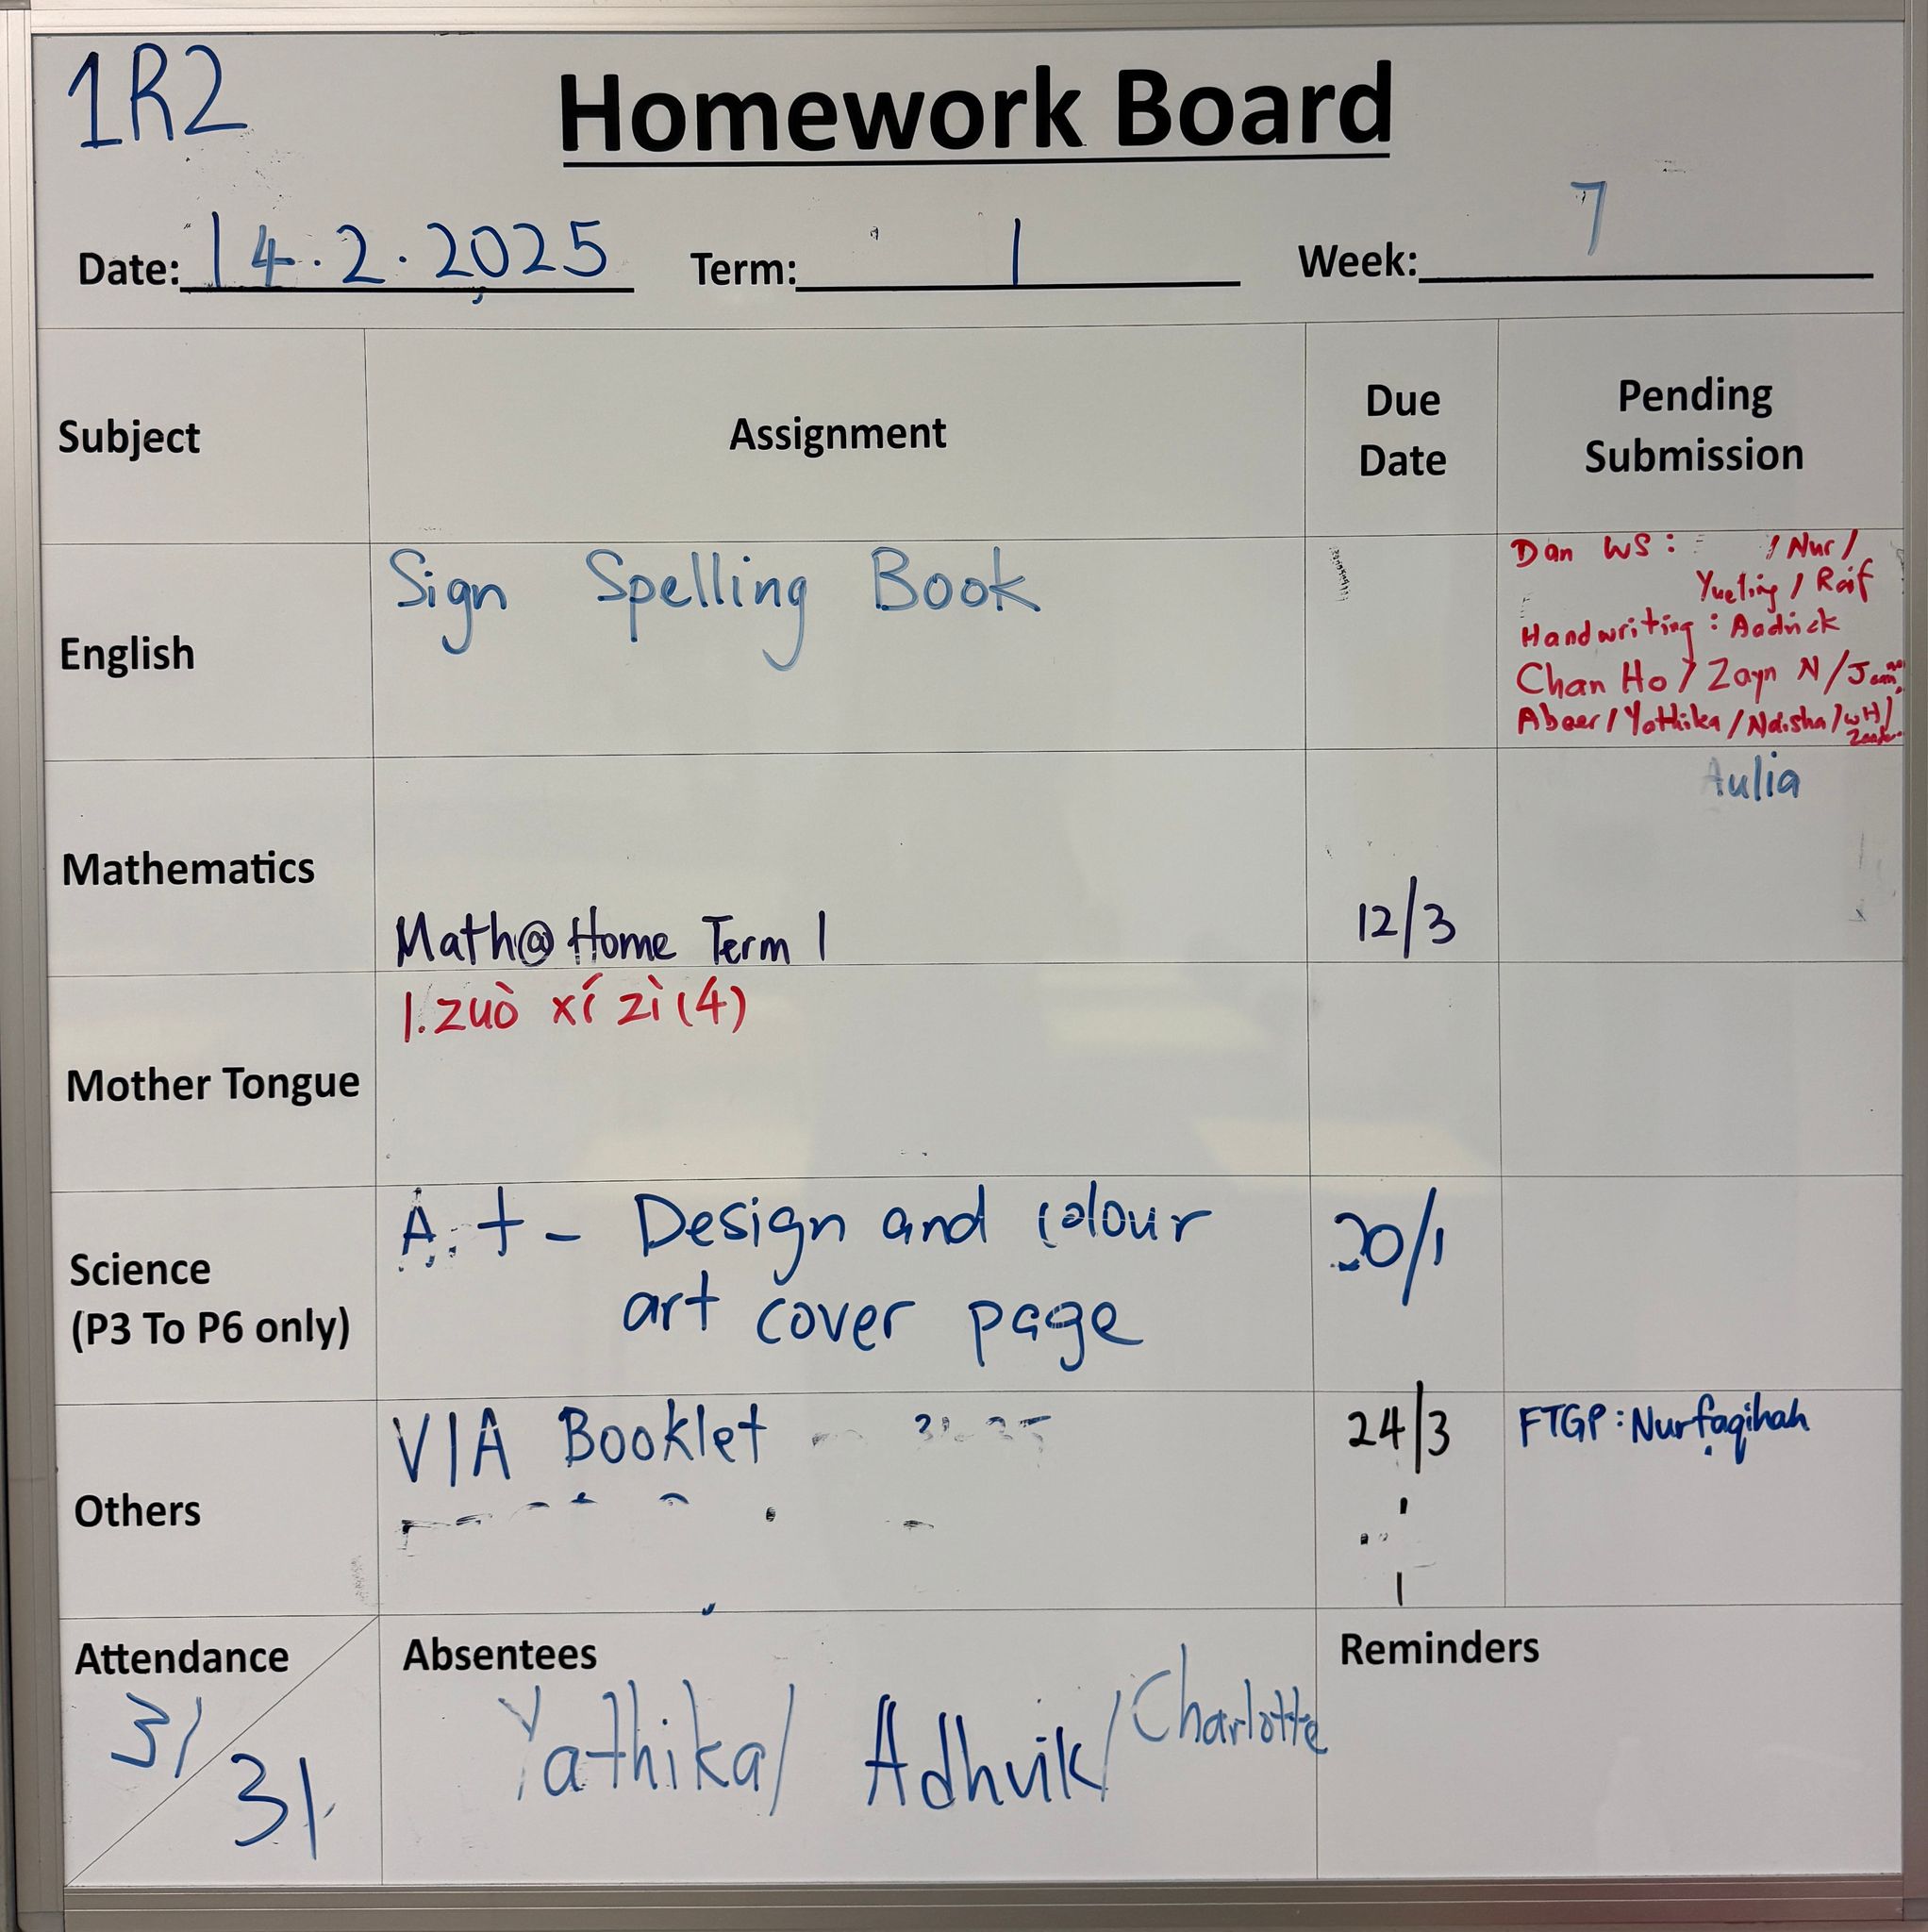 1R2
Homework Board
Date: 14.2.2025 Term: 1 Week: 7
Subject Assignment Due Date Pending Submission
English Sign Spelling Book
Dan WS: / Nur /
Yueling / Raif
Handwriting: Aadrick
Chan Ho / Zayn N /
Abeer / Yathika / Naisha / WH /
Aulia
Mathematics Math@Home Term 1 12/3
Mother Tongue 1. zuò xí zì (4)
Science (P3 To P6 only) A.t - Design and colour 20/1
art cover page
Others VIA Booklet 24/3 FTGP: Nurfaqihah
Attendance Absentees Reminders
31/31 Yathika / Adhvik / Charlotte